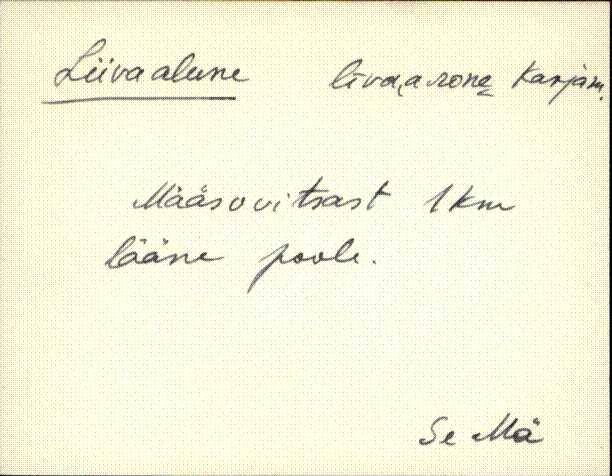 Liivaalune līva,arone Karjam.
Määsovitsast 1 km
lääne poole.
Se Mä